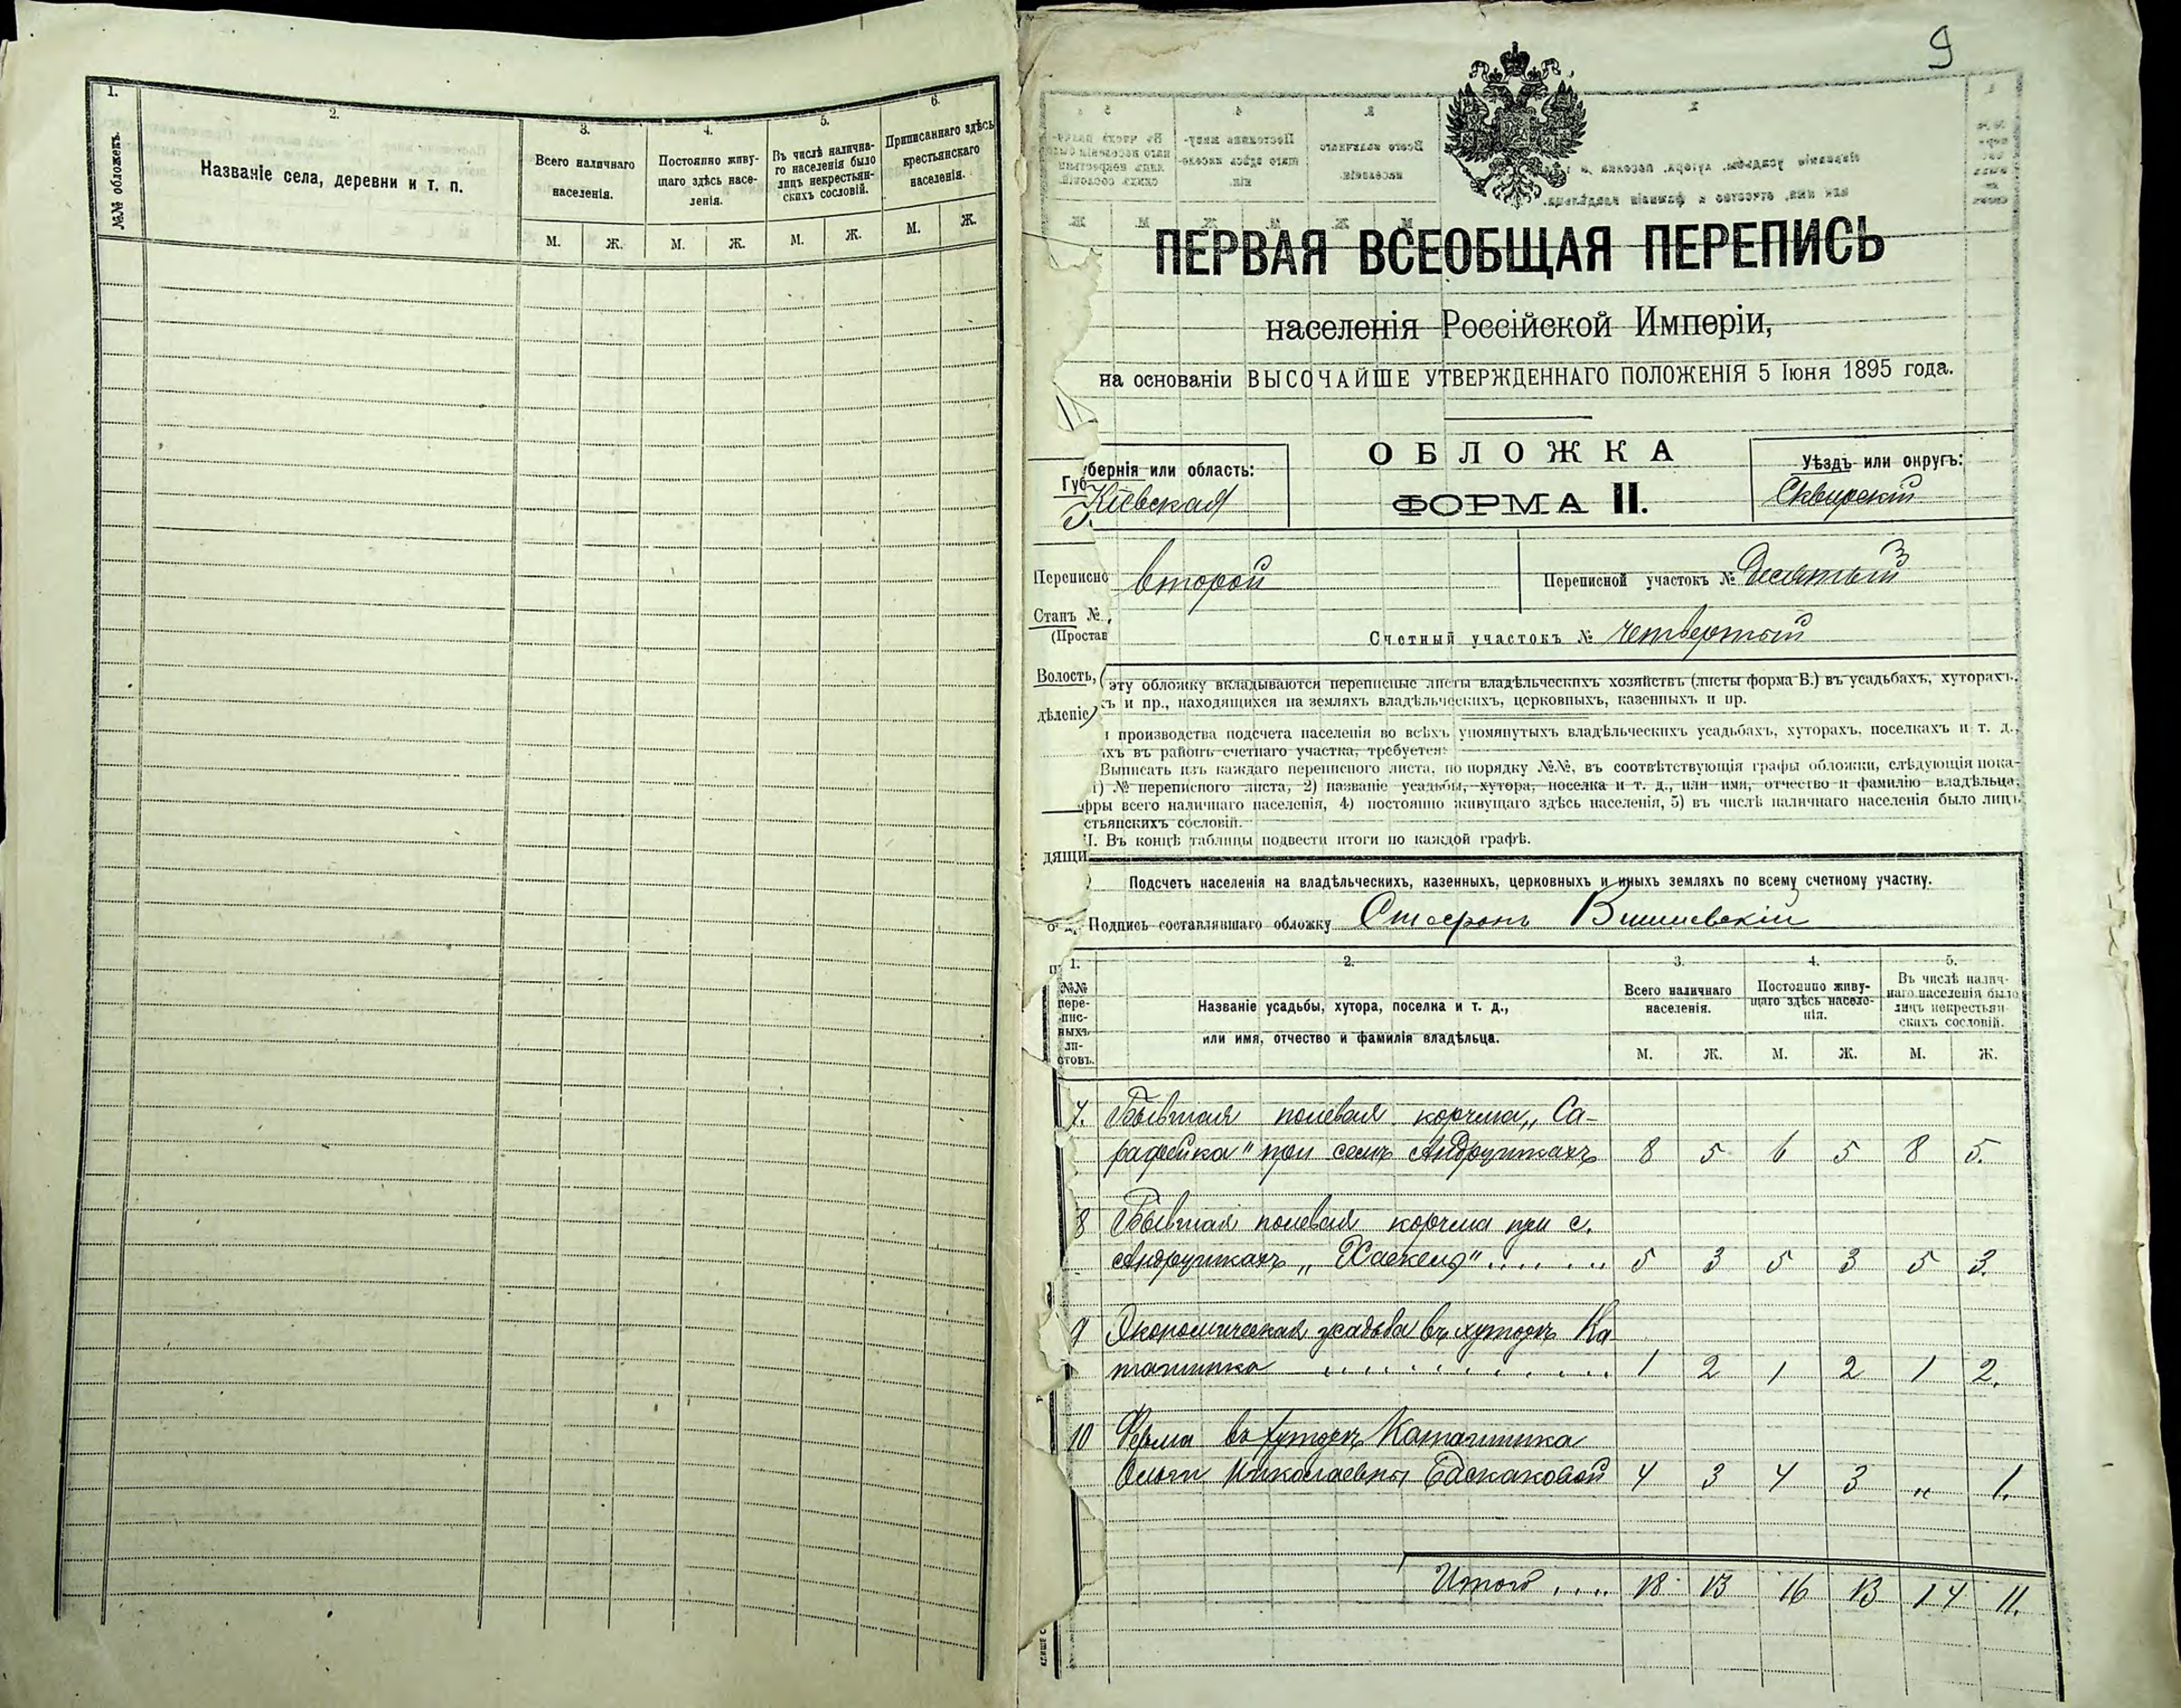 1.
№№ обложекъ.
2.
Названіе села, деревни и т. п.
3.
Всего наличнаго
населенія.
М. Ж.
4.
Постоянно живу-
щаго здѣсь насе-
ленія.
М. Ж.
5.
Въ числѣ налична-
го населенія было
лицъ некрестьян-
скихъ сословій.
М. Ж.
6.
Приписаннаго здѣсь
крестьянскаго
населенія.
М. Ж.
9
ПЕРВАЯ ВСЕОБЩАЯ ПЕРЕПИСЬ
населенія Россійской Имперіи,
на основаніи ВЫСОЧАЙШЕ УТВЕРЖДЕННАГО ПОЛОЖЕНІЯ 5 Іюня 1895 года.
Губернія или область:
Кіевская
ОБЛОЖКА
ФОРМА II.
Уѣздъ или округъ:
Сквирскій
Переписно
второй
Переписной участокъ № Десятый 3
Станъ №
(Простав
Счетный участокъ № четвертый
Волость,
эту обложку вкладываются переписные листы владѣльческихъ хозяйствъ (листы форма Б.) въ усадьбахъ, хуторахъ,
дѣленіе)
хъ и пр., находящихся на земляхъ владѣльческихъ, церковныхъ, казенныхъ и пр.
производства подсчета населенія во всѣхъ упомянутыхъ владѣльческихъ усадьбахъ, хуторахъ, поселкахъ и т. д.,
ихъ въ районѣ счетнаго участка, требуется:
Выписать изъ каждаго переписного листа, по порядку №№, въ соотвѣтствующія графы обложки, слѣдующія пока-
1) № переписного листа, 2) названіе усадьбы, хутора, поселка и т. д., или имя, отчество и фамилію владѣльца,
фры всего наличнаго населенія, 4) постоянно живущаго здѣсь населенія, 5) въ числѣ наличнаго населенія было лицъ
стьянскихъ сословій.
II. Въ концѣ таблицы подвести итоги по каждой графѣ.
дящи
Подсчетъ населенія на владѣльческихъ, казенныхъ, церковныхъ и иныхъ земляхъ по всему счетному участку.
Подпись составлявшаго обложку Стефанъ Вишневскій
1.
№№
пере-
пис-
ныхъ
ли-
стовъ.
2.
Названіе усадьбы, хутора, поселка и т. д.,
или имя, отчество и фамилія владѣльца.
3.
Всего наличнаго
населенія.
М. Ж.
4.
Постоянно живу-
щаго здѣсь населе-
нія.
М. Ж.
5.
Въ числѣ налич-
наго населенія было
лицъ некрестьян-
скихъ сословій.
М. Ж.
7. Бывшая полевая корчма „Са-
при селѣ Андрушкахъ 8 5 6 5 8 5.
8 Бывшая полевая корчма при с.
Андрушкахъ „Хаскеля" 5 3 5 3 5 3.
9 Экономическая усадьба въ хуторѣ Ка-
1 2 1 2 1 2.
10 Ферма въ хуторѣ
Ольги Николаевны Баскаковой 4 3 4 3 „ 1.
Итого .... 18 13 16 13 14 11.